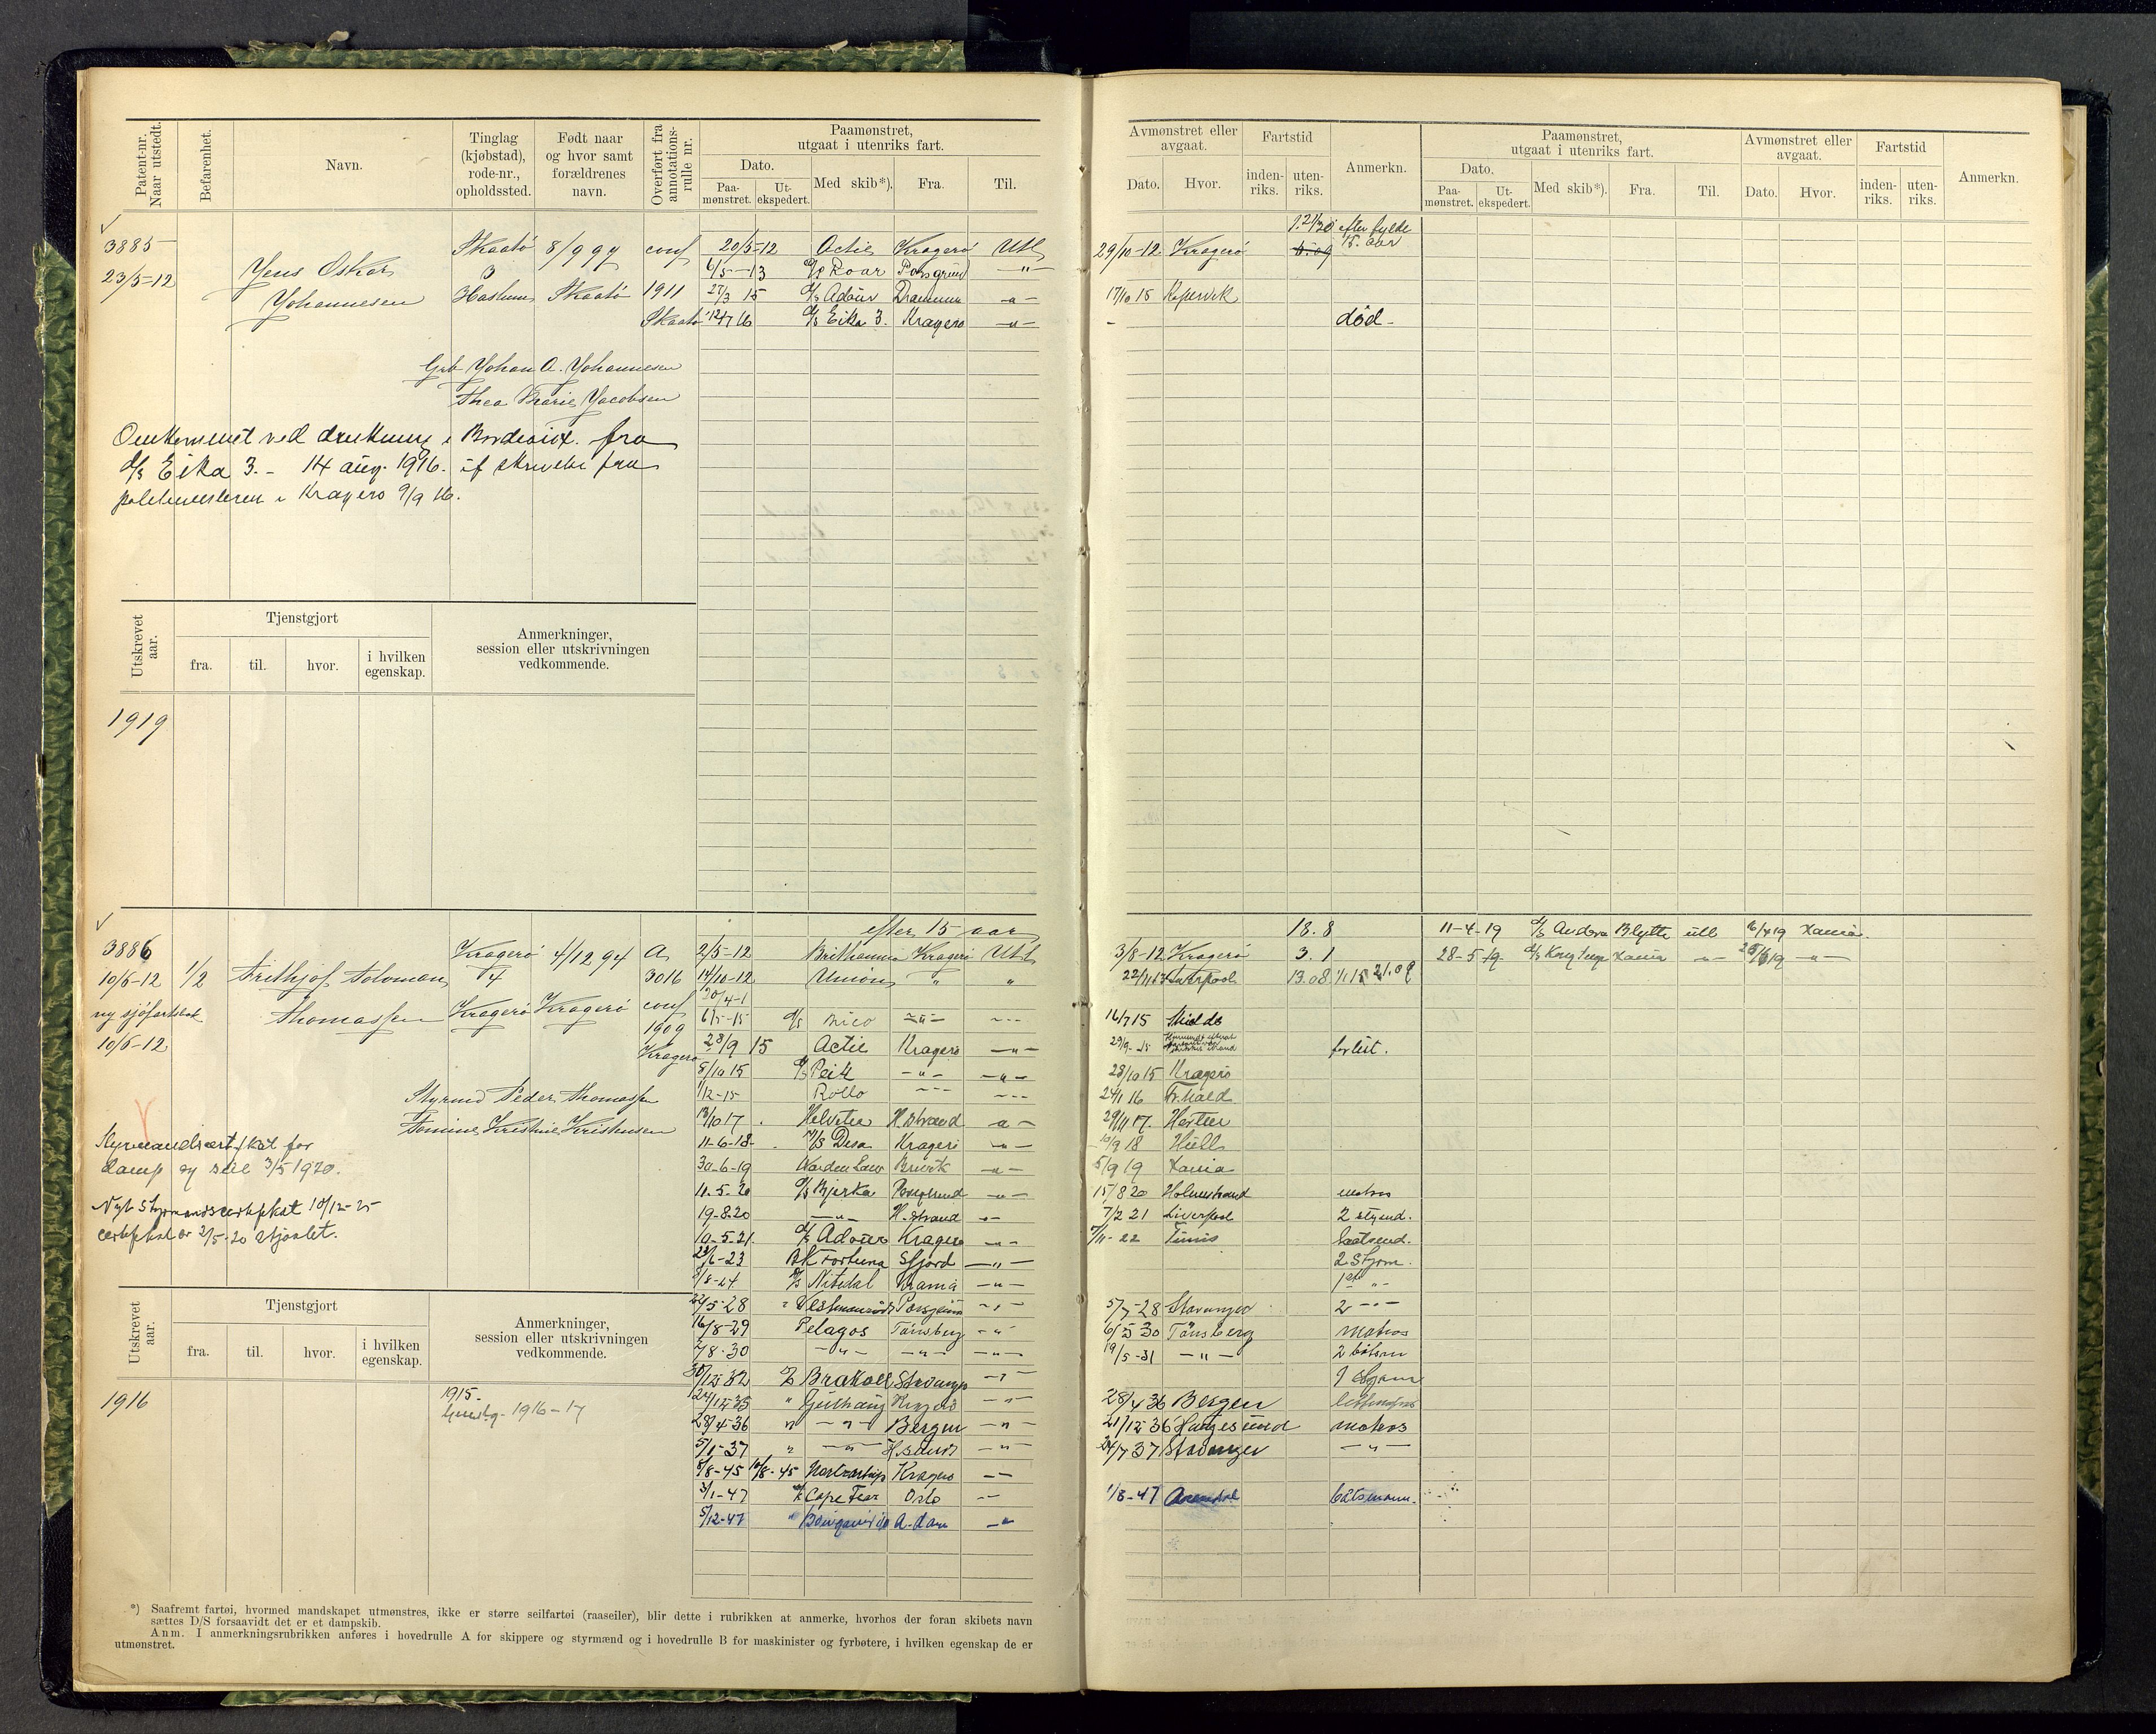 Patent-nr. Naar utstedt.
Befarenhet.
Navn.
Tinglag (kjøbstad), rode-nr., opholdssted.
Født naar og hvor samt forældrenes navn.
Overført fra annotations-rulle nr.
Paamønstret, utgaat i utenriks fart.
Dato.
Paa-mønstret.
Ut-ekspedert.
Med skib*).
Fra.
Til.
3885 Skaatø 8/9 97 conf 20/5-12 Actie Kragerø Utl
23/5-12 Jens Oskar 3 6/5-13 Roar Porsgrund -"-
Johannesen Haslum Skaatø 1911 27/3 15 d/s Adour Drammen -"-
Skaatø 12/7 16 d/s Eika 3. Kragerø -"-
Johan A. Johannesen
Thea Marie Jacobsen
Omkommet ved drukning i Bordeaux. fra
d/s Eika 3. - 14 aug. 1916. if skrivelse fra
politimesteren i Kragerø 9/9 16.
Utskrevet aar.
Tjenstgjort
fra.
til.
hvor.
i hvilken egenskap.
Anmerkninger, session eller utskrivningen vedkommende.
1919
efter 15 aar
3886 Kragerø 4/12 94 A 2/5-12 Brithannia Kragerø Utl
10/6-12 1/2 Frithjof Solomon 74 3016 14/10-12 Union " "
ny sjøfartsbok Thomassen Kragerø Kragerø conf
6/5-15 d/s Rico -"- -"-
10/6-12 1909 28/9 15 Actie Kragerø -"-
Kragerø 8/10 15 d/s Peik -"- -"-
1/12-15 Rollo -"- -"-
Styrmd Peder Thomassen
Tomine Kristine Kristensen
13/10 17 Helvetia H.strand -"-
11-6-18 Desa Kragerø -"-
30-6-19 Norden Brevik -"-
11-5-20 d/s Bjerka Porsgrund -"-
19-8-20 -"- H.strand -"-
10-5-21 d/s Adour Kragerø -"-
23/6-23 BK Fortuna Sfjord -"-
8/8-24 d/s Nitedal Krania -"-
Styrmandscertifikat for
damp og seil 3/5 1920.
Nyt Styrmandscertifikat 10/12-25
certifikat av 3/5-20 stjaalet.
22/5-28 Vestmanrød Porsgrund -"-
16/8-29 Pelagos Tønsberg -"-
7/8-30 -"- -"- -"-
Brakoll Stavanger -"-
" Gulhaug Kragerø -"-
28/4-36 " -"- Bergen -"-
5/1-37 " -"- H.sund -"-
8/8-45 10/8-45 Kragerø -"-
3/1-47 Cape Fear Oslo -"-
5/12-47 " A-dam -"-
Utskrevet aar.
Tjenstgjort
fra.
til.
hvor.
i hvilken egenskap.
Anmerkninger, session eller utskrivningen vedkommende.
1916
1915.
1916-17
*) Saafremt fartøi, hvormed mandskapet utmønstres, ikke er større seilfartøi (raaseiler), blir dette i rubrikken at anmerke, hvorhos der foran skibets navn
sættes D/S forsaavidt det er et dampskib.
Anm. I anmerkningsrubrikken anføres i hovedrulle A for skippere og styrmænd og i hovedrulle B for maskinister og fyrbøtere, i hvilken egenskap de er
utmønstret.
Avmønstret eller avgaat.
Dato.
Hvor.
Fartstid
inden-riks.
uten-riks.
Anmerkn.
Paamønstret, utgaat i utenriks fart.
Dato.
Paa-mønstret.
Ut-ekspedert.
Med skib*).
Fra.
Til.
Avmønstret eller avgaat.
Dato.
Hvor.
Fartstid
inden-riks.
uten-riks.
Anmerkn.
efter fylte
29/10-12 Kragerø 15. aar
17/10 15 Kopervik
død-
18.8 11-4-19 Blytte utl 16/4 19 Xania.
3/8-12 Kragerø 3.1 28-5-19 Xania -"- -"-
22/11 13 Liverpool 13.08 1/1 15 21.08
16/7 15 Skields
29/9-15 forlist.
28/10 15 Kragerø
24/1 16 Fr.hald
29/11 17. Hartlep
10/9 18 Hull
5/9 19 Xania
15/8 20 Holmestrand matros
7/2 21 Liverpool 2 styrmd.
7/11-22 Tunis baatsmd.
2 Styrm.
1ste -"-
5/7-28 Stavanger 2 -"-
6/5 30 Tønsberg matros
19/5-31 -"- 2 båtsm
2 Styrm
28/4 36 Bergen lettmatros
21/12 36 Haugesund matros
24/7 37 Stavanger -"-
1/8-47 Arendal båtsmann.